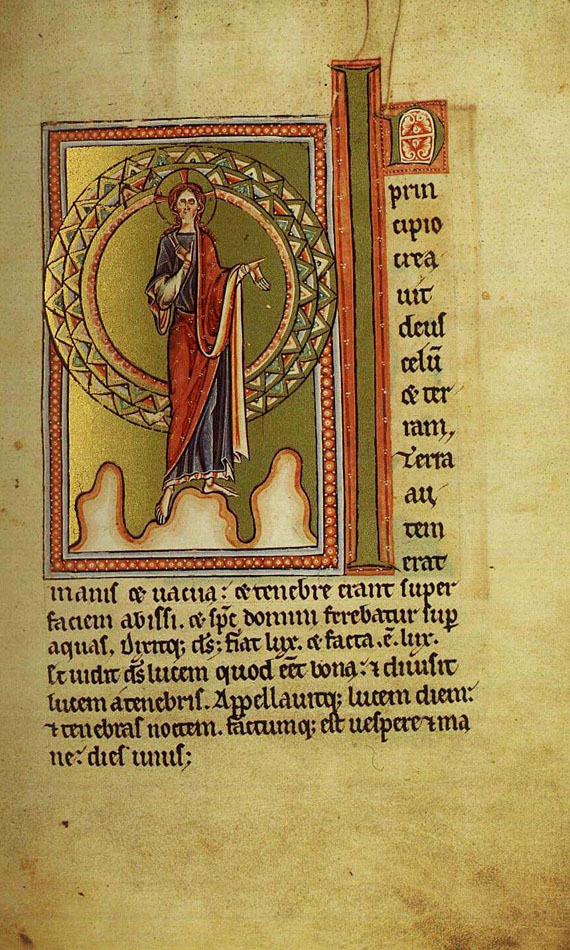 IN
prin
cipio
crea
uit
deuſ
celū
& ter
ram,
Terra
au
tem
erat
inaniſ & uacua: & tenebre erant ſuper
faciem abiſſi. & ſpc̄ domini ferebatur ſup
aquas. Dixitq; dſ̄: fiat lux. & facta .ē. lux.
Et uidit dſ̄ lucem quod eēt bona: ⁊ diuiſit
lucem a tenebriſ. Appellauitq; lucem diem:
⁊ tenebras noctem. factumq; eſt ueſpere ⁊ ma
ne: dieſ unuſ;